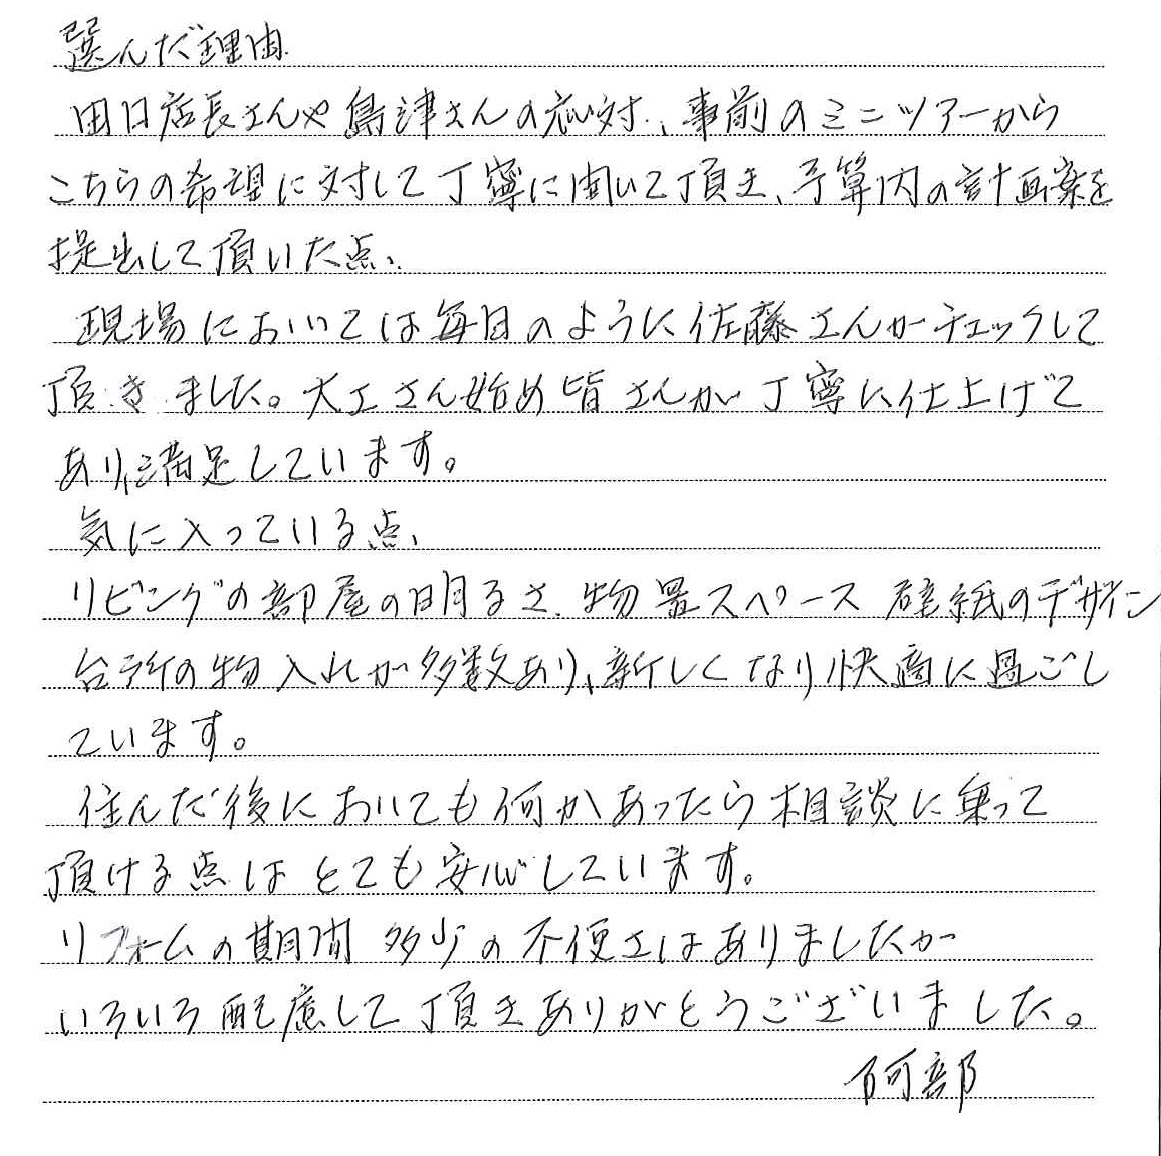 選んだ理由
田口店長さんや島津さんの応対、事前のミニツアーから
こちらの希望に対して丁寧に聞いて頂き、予算内の計画案を
提出して頂いた点、
現場においては毎日のように佐藤さんがチェックして
頂きました。大工さん始め皆さんが丁寧に仕上げて
あり、満足しています。
気に入っている点、
リビングの部屋の明るさ、物置スペース 壁紙のデザイン
台所の物入れが多数あり、新しくなり快適に過ごし
ています。
住んだ後においても何かあったら相談に乗って
頂ける点はとても安心しています。
リフォームの期間 多少の不便さはありましたが
いろいろ配慮して頂きありがとうございました。
阿部